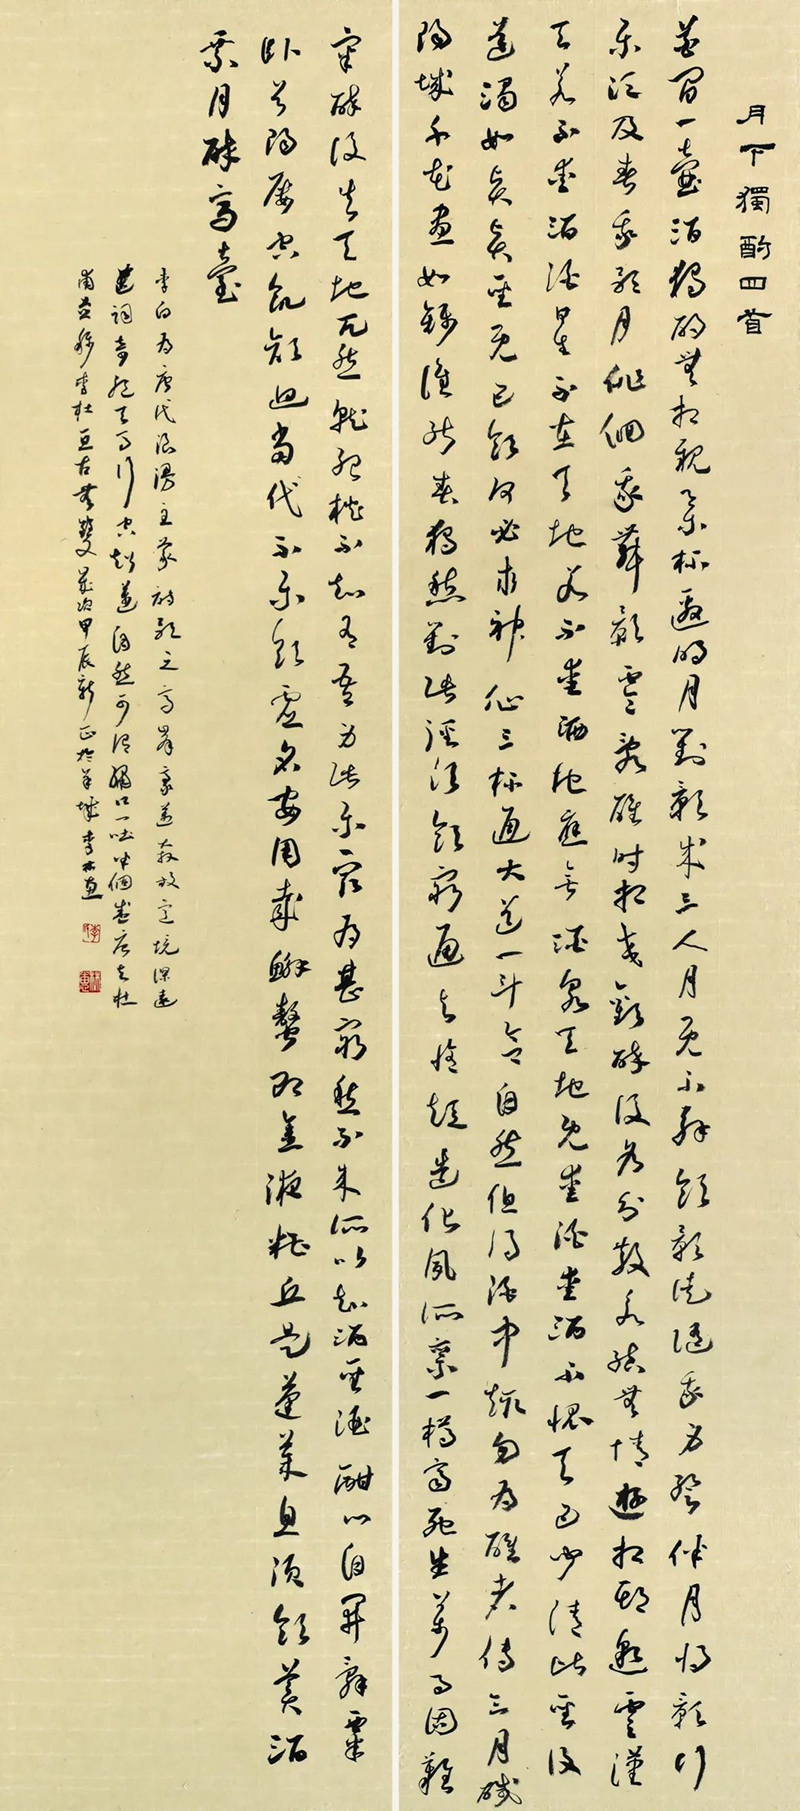 月下獨酌四首
花間一壺酒獨酌無相親舉杯邀明月對影成三人月既不解飲影徒隨我身暫伴月將影行
樂須及春我歌月徘徊我舞影零亂醒時相交歡醉後各分散永結無情遊相期邈雲漢
天若不愛酒酒星不在天地若不愛酒地應無酒泉天地既愛酒愛酒不愧天已聞清比聖復
道濁如賢賢聖既已飲何必求神仙三杯通大道一斗合自然但得酒中趣勿為醒者傳三月咸
陽城千花晝如錦誰能春獨愁對此徑須飲窮通与修短造化夙所稟一樽齊死生萬事固難
審醉後失天地兀然就孤枕不知有吾身此樂最為甚窮愁不來所以知酒聖酒酣心自開辭粟
臥首陽屢空飢顏迴當代不樂飲虛名安用哉蟹螯即金液糟丘是蓬萊且須飲美酒
乘月醉高臺
李白為唐代浪漫主義詩歌之高峯豪邁奔放意境深遠
造詞奇絕天馬行空超邁自然可謂繡口一吐半個盛唐与杜
甫並稱李杜亘古無雙歲次甲辰新正於羊城李林